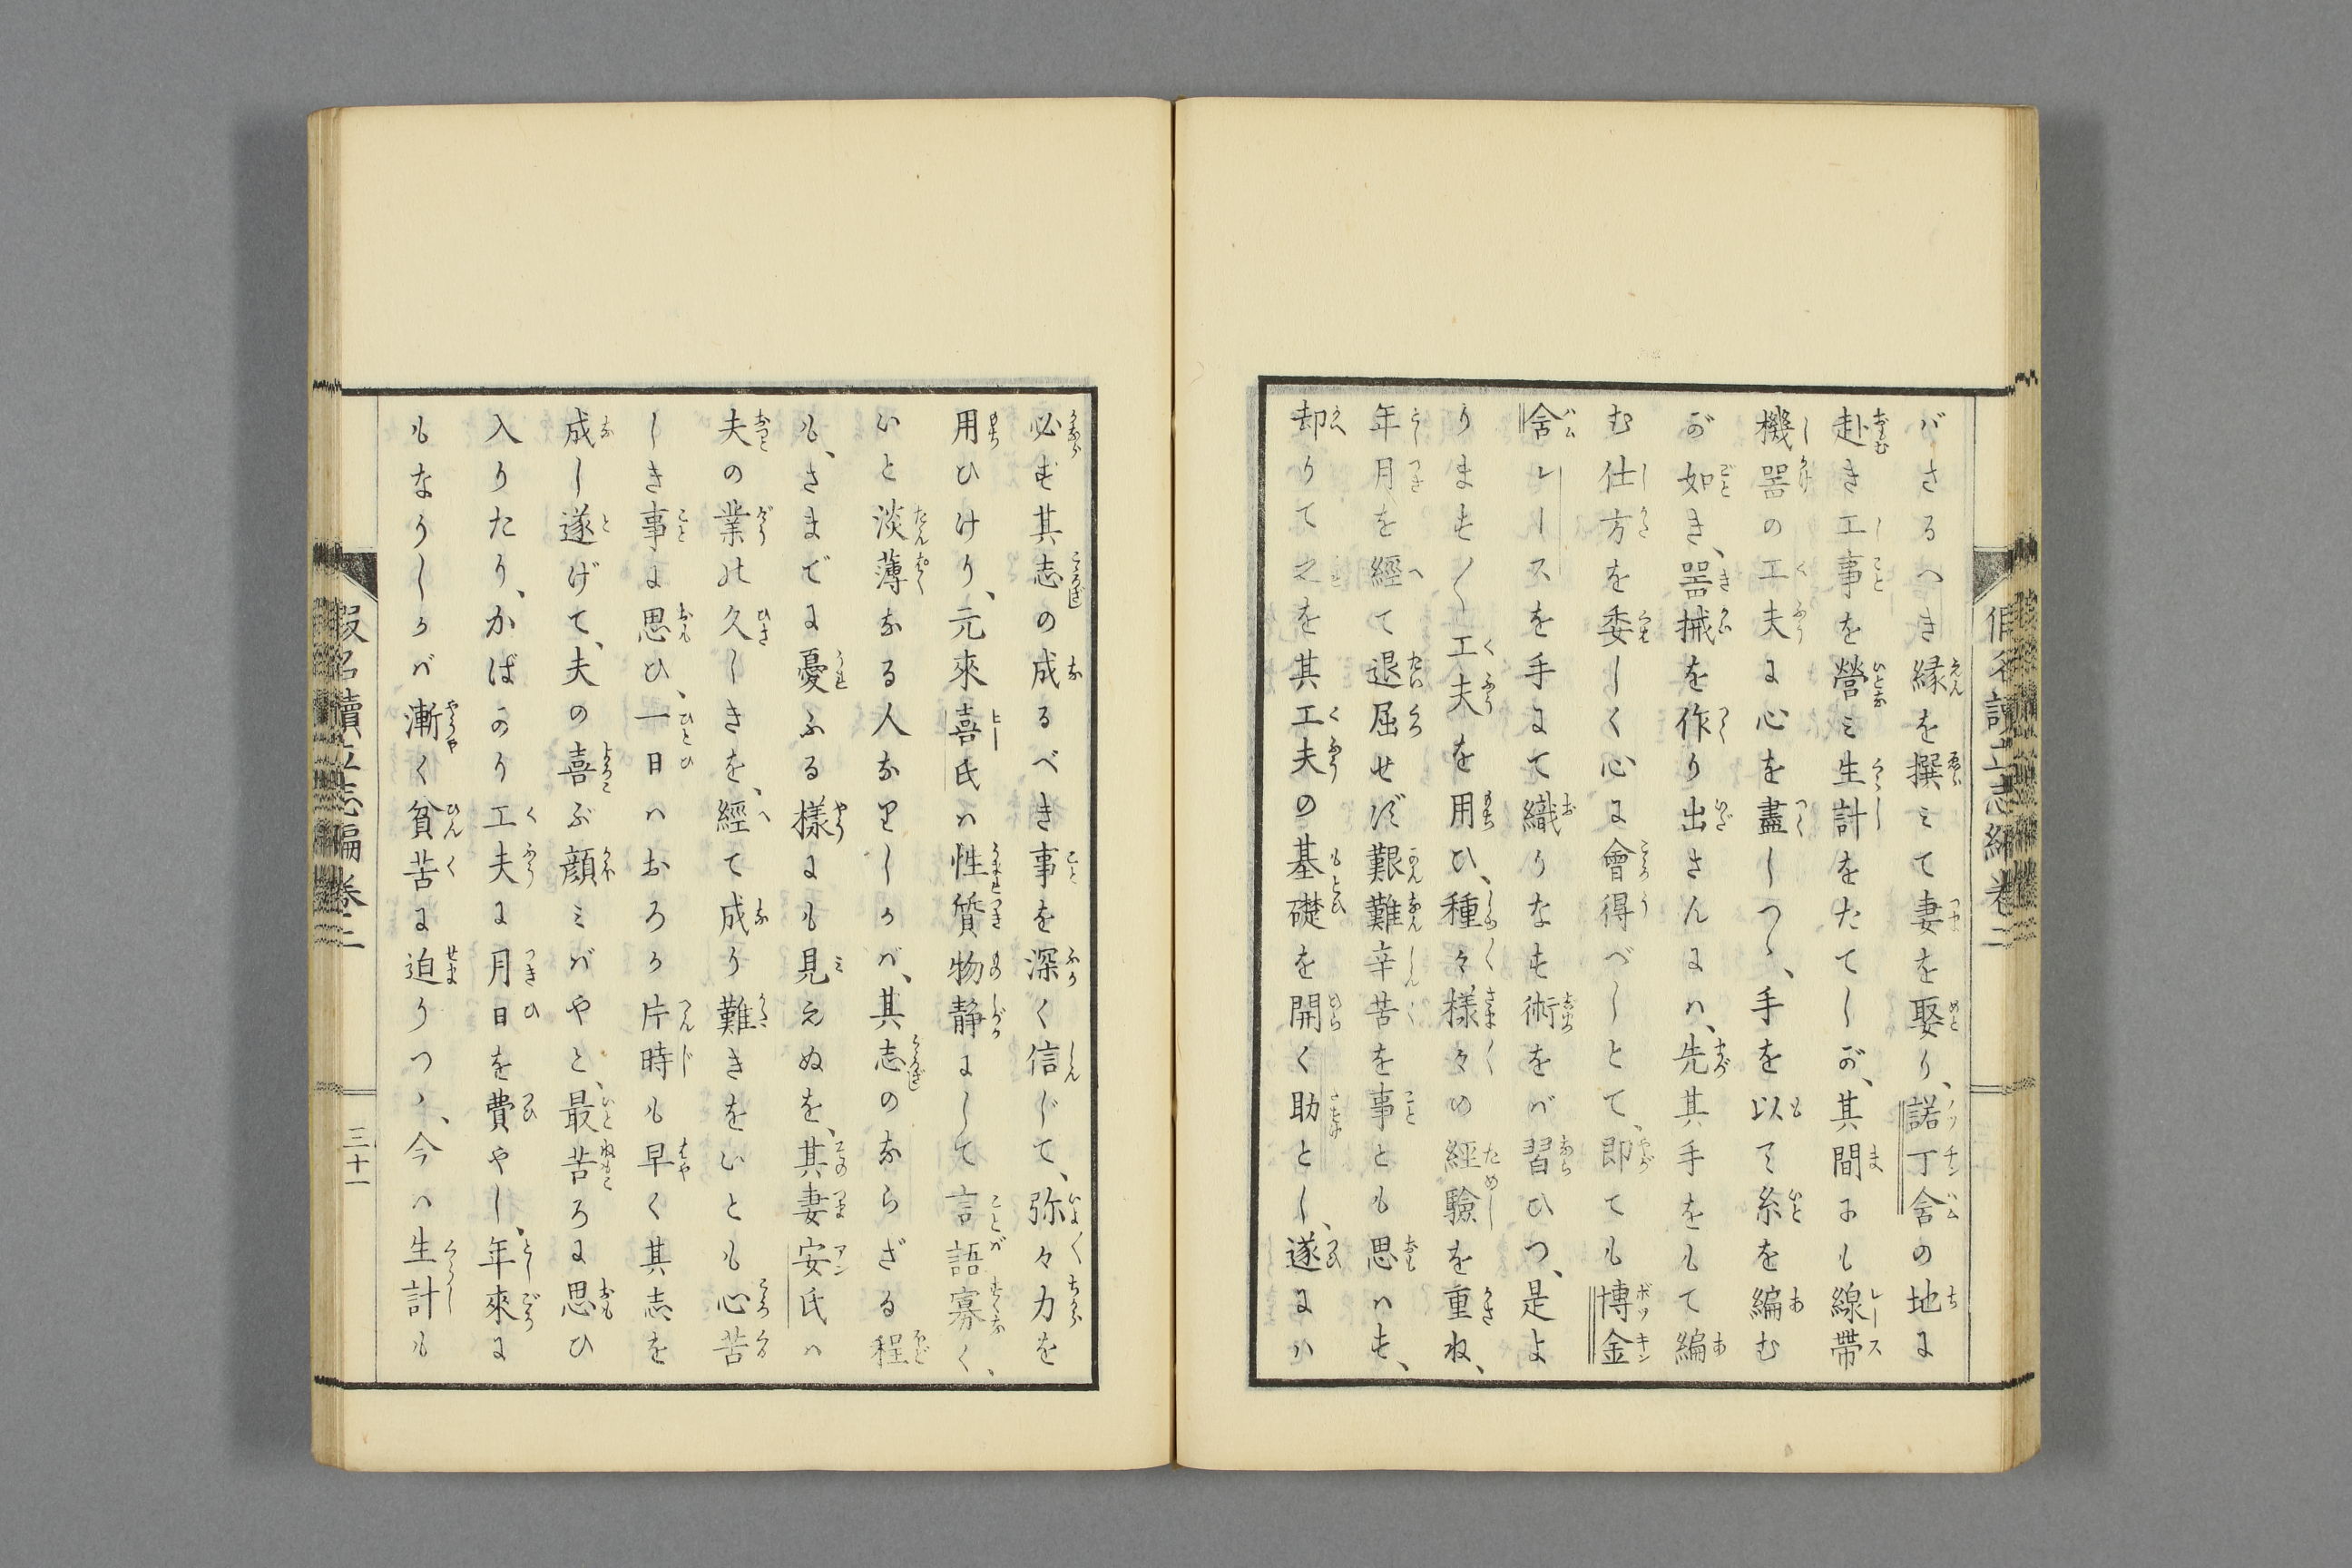 バさるへき縁を撰ミて妻を娶り、諾丁舍の地に
赴き工事を營ミ生計をたてしが、其間にも線帶
機噐の工夫に心を盡しつゝ、手を以て糸を編む
が如き、噐械を作り出さんにハ、先其手をもて編
む仕方を委しく心に會得べしとて、即ても博金
舍レースを手にて織りなす術をバ習ひつ、是よ
ります〱工夫を用ひ、種々樣々の經驗を重ね、
年月を經て退屈せず艱難辛苦を事とも思ハず、
却りて之を其工夫の基礎を開く助とし、遂にハ
必ず其志の成るべき事を深く信じて、弥々力を
用ひけり、元來喜氏ハ性質物静にして言語寡く、
いと淡薄なる人なりしかバ、其志のならざる程
も、さまでに憂ふる樣にも見えぬを、其妻安氏ハ
夫の業の久しきを、經て成り難きをいとも心苦
しき事に思ひ、一日ハおろか片時も早く其志を
成し遂げて、夫の喜ぶ顔ミバやと、最苦ろに思ひ
入りたり、かばかり工夫に月日を費やし、年來に
もなりしかバ漸く貧苦に迫りつゝ、今ハ生計も
假名讀立志編 卷二
三十一